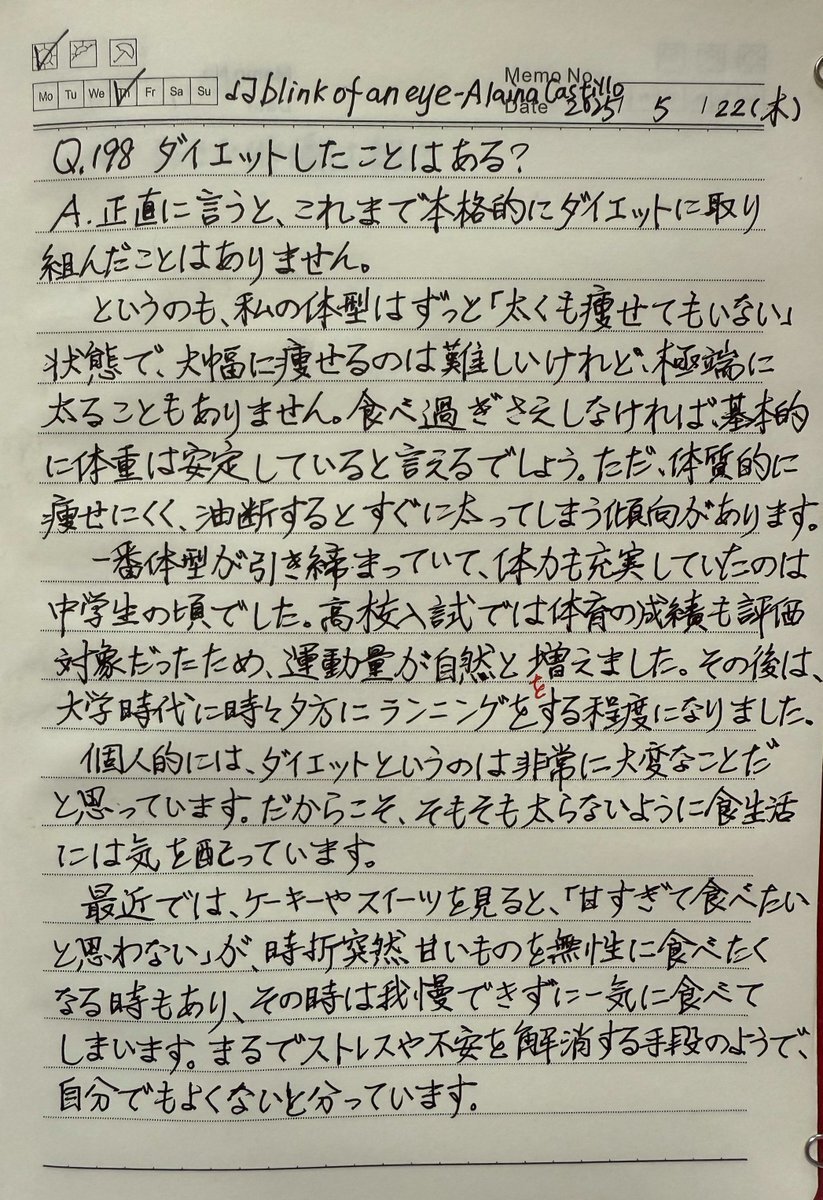 Memo No.
Mo Tu We Th Fr Sa Su
♫ blink of an eye - Alaina Castillo
Date 2025 / 5 / 22 (木)
Q.198 ダイエットしたことはある?
A. 正直に言うと、これまで本格的にダイエットに取り
組んだことはありません。
というのも、私の体型はずっと「太くも痩せてもいない」
状態で、大幅に痩せるのは難しいけれど、極端に
太ることもありません。食べ過ぎさえしなければ、基本的
に体重は安定していると言えるでしょう。ただ、体質的に
痩せにくく、油断するとすぐに太ってしまう傾向があります。
一番体型が引き締まっていて、体力も充実していたのは
中学生の頃でした。高校入試では体育の成績も評価
対象だったため、運動量が自然と増えました。その後は、
を
大学時代に時々夕方にランニングをする程度になりました。
個人的には、ダイエットというのは非常に大変なことだ
と思っています。だからこそ、そもそも太らないように食生活
には気を配っています。
最近では、ケーキーやスイーツを見ると、「甘すぎて食べたい
と思わない」が、時折突然甘いものを無性に食べたく
なる時もあり、その時は我慢できずに一気に食べて
しまいます。まるでストレスや不安を解消する手段のようで、
自分でもよくないと分っています。